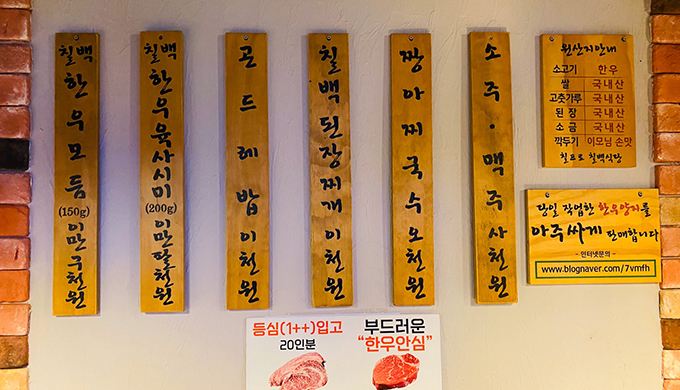 칠백
한우모둠
(150g)
이만구천원
칠백
한우육사시미
(200g)
이만팔천원
곤드레밥이천원
칠백된장찌개이천원
짱아찌국수오천원
소주·맥주사천원
원산지안내
소고기 한우
쌀 국내산
고춧가루 국내산
된장 국내산
소금 국내산
깍두기 이모님 손맛
칠프로 칠백식당
당일 작업한 한우양지를
아주 싸게 판매합니다
- 인터넷문의 -
www.blognaver.com/7vmfh
등심(1++)입고
20인분
부드러운
"한우안심"